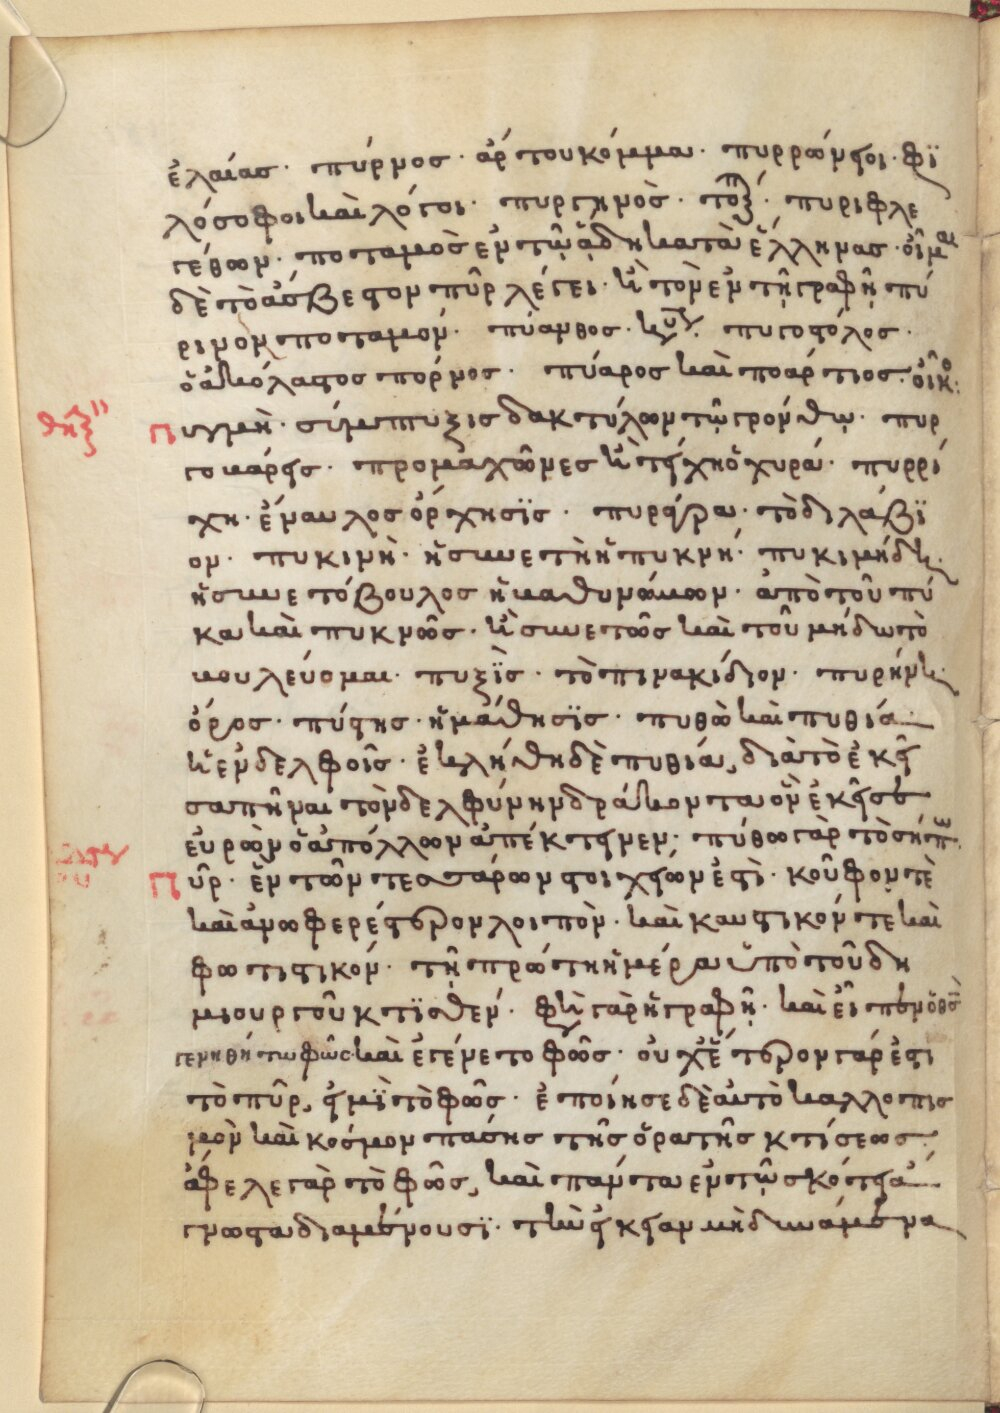 ἐλαίας · πύρνος · ἄρτου κόμμα · πυρρώνειοι · φϊ
λόσοφοι καὶ λόγοι · πυργηνὸς · τοξ · πυριφλε
γέθων · ποταμὸς ἐν τῷ ἅδη κατὰ ἕλληνας · οἶμαι
δὲ τὸ ἄσβεστον πῦρ λέγει · ἢ τὸν ἐν τῇ γραφῇ πύ
ρινον ποταμόν · πύανθος · πυγοστόλος ·
ὁ ἀκόλαστος πόρνος · πύαρος καὶ ποάρτιος · οἶκος
πυγμὴ · σύμπτυξις δακτύλων τῷ γρόνθω · πυρ
γομάχεις · προμαχῶνες ἢ τείχη ὀχυρά · πυρρί
χη · ἔναυλος ὄρχησϊς · πυράγρα · τὸ διλάβϊ
ον · πυκινὴ · ἡ συνετὴ ἢ πυκνή · πυκιμήδης
ἡ συνετόβουλος ἢ καθυμάνων · ἀπὸ τοῦ πύ
κα καὶ πυκνῶς · ἢ συνετῶς καὶ τοῦ μήδω τὸ
βουλεύομαι · πυξὶς · τὸ πινακίδιον · πυρήνης
ὄρος · πύστης · ἡ μάθησϊς · πυθὼ καὶ πυθία
ἡ ἐν δελφοῖς · ἐκλήθη δὲ πυθία, διὰ τὸ ἐκεῖ
σαπῆναι τὸν δελφύνην δράκοντα ὃν ἐκεῖσε
εὑρὼν ὁ ἀπόλλων ἀπέκτεινεν · πύθω γὰρ τὸ σήπω
πῦρ · ἓν τῶν τεσσάρων στοιχείων ἐστὶ · κοῦφόν τε
καὶ ἀνωφερέστερον λοιπὸν · καὶ καυστικόν τε καὶ
φωτιστικόν · τῇ πρώτη ἡμέρα ὑπὸ τοῦ δη
μιουργοῦ κτϊσθέν · φησὶ γὰρ ἡ γραφή · καὶ εἶπεν ὁ θεὸς
γενηθήτω φῶς καὶ ἐγένετο φῶς · οὐχ ἕτερον γάρ ἐστι
τὸ πῦρ, εἰ μὴ τὸ φῶς · ἐποίησε δὲ αὐτὸ καλλοπισ
μὸν καὶ κόσμον πάσης τῆς ὁρατῆς κτίσεως ·
ἄφελε γὰρ τὸ φῶς, καὶ πάντα ἐν τῷ σκότει ἄ
γνωστα διαμένουσϊ · τὴν οἰκείαν μὴ δυνάμενα